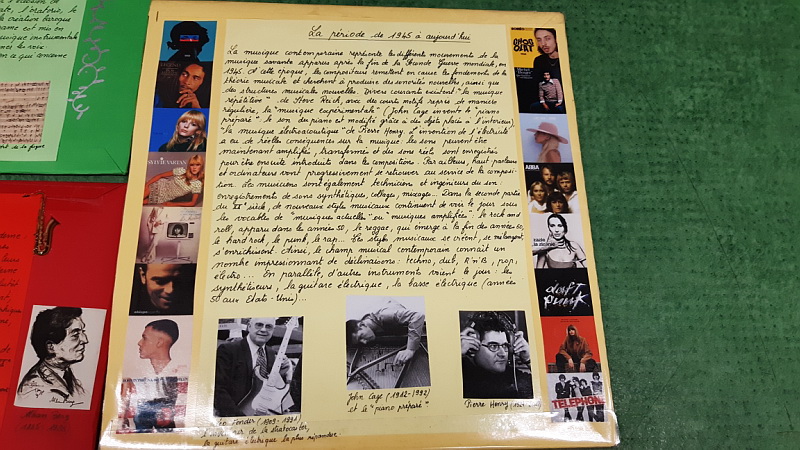 La période de 1945 à aujourd'hui
La musique contemporaine représente les différents mouvements de la
musique savante apparus après la fin de la Seconde Guerre mondiale, en
1945. A cette époque, les compositeurs remettent en cause les fondements de la
théorie musicale et cherchent à produire des sonorités nouvelles, ainsi que
des structures musicales nouvelles. Divers courants existent "la musique
répétitive" de Steve Reich, avec des courts motifs repris de manière
régulière, la "musique expérimentale" (John Cage invente le "piano
préparé": le son du piano est modifié grâce à des objets placés à l'intérieur)
"la musique électroacoustique" de Pierre Henry. L'invention de l'électricité
a eu de réelles conséquences sur la musique: les sons peuvent être
maintenant amplifiés, transformés et des sons réels sont enregistrés
pour être ensuite introduits dans les compositions. Par ailleurs, haut parleurs
et ordinateurs vont progressivement se retrouver au service de la composi-
tion. Les musiciens sont également techniciens et ingénieurs du son:
enregistrements de sons synthétiques, collages, mixages... Dans la seconde partie
du XXe siècle, de nouveaux styles musicaux continuent de voir le jour sous
les vocables de "musiques actuelles" ou "musiques amplifiées": le rock and
roll, apparu dans les années 50, le reggae, qui émerge à la fin des années 60,
le hard rock, le punk, le rap... Ces styles musicaux se créent, se mélangent,
s'enrichissent. Ainsi, le champ musical contemporain connaît un
nombre impressionnant de déclinaisons: techno, dub, R'n'B, pop,
électro... En parallèle, d'autres instruments voient le jour: les
synthétiseurs, la guitare électrique, la basse électrique (années
50 aux Etats-Unis)...
John Cage (1912-1992)
et le "piano préparé"
Pierre Henry
Fender (1909-1991)
de la stratocaster,
la guitare électrique la plus répandue
SYLVIE VARTAN
ABBA
daft
punk
TELEPHONE